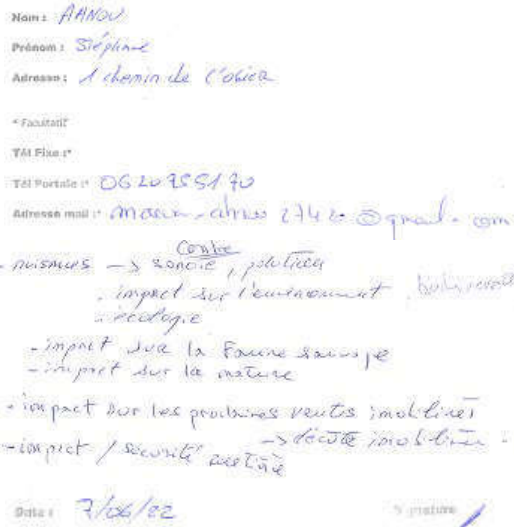 Nom : AANOU
Prénom : Stéphane
Adresse : 1 chemin de l'obier
* Facultatif
Tél Fixe :*
Tél Portale :* 06 20 755170
Adresse mail :* 2742 @gmail.com
Contre
- nuisances -> sonore, pollution
- impact sur l'environnement
- écologie
- impact sur la Faune sauvage
- impact sur la nature
- impact sur les prochaines ventes imobilires
-> décote imobilire
- impact / sécurité
Date : 7/06/22
Signature